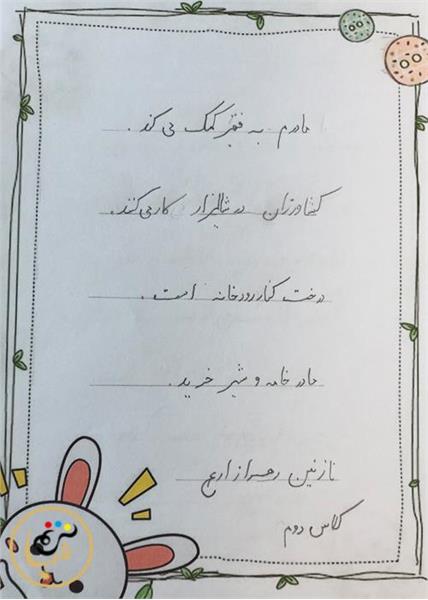 مادرم به فقیر کمک می کند .
کشاورزان در شالیزار کار می کنند .
درخت کنار رودخانه است .
مادر خامه و شیر خرید .
نازنین
کلاس دوم